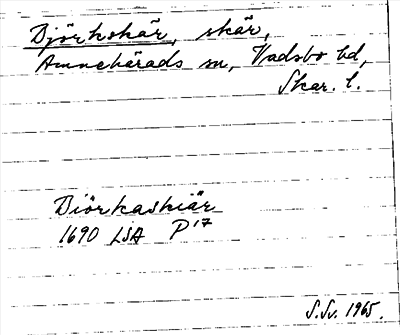 Djörkskär, skär,
Amnehärads sn, Vadsbo hd,
Skar. l.
Diörkaskiär
1690 LSA P17
S.Sv. 1965.